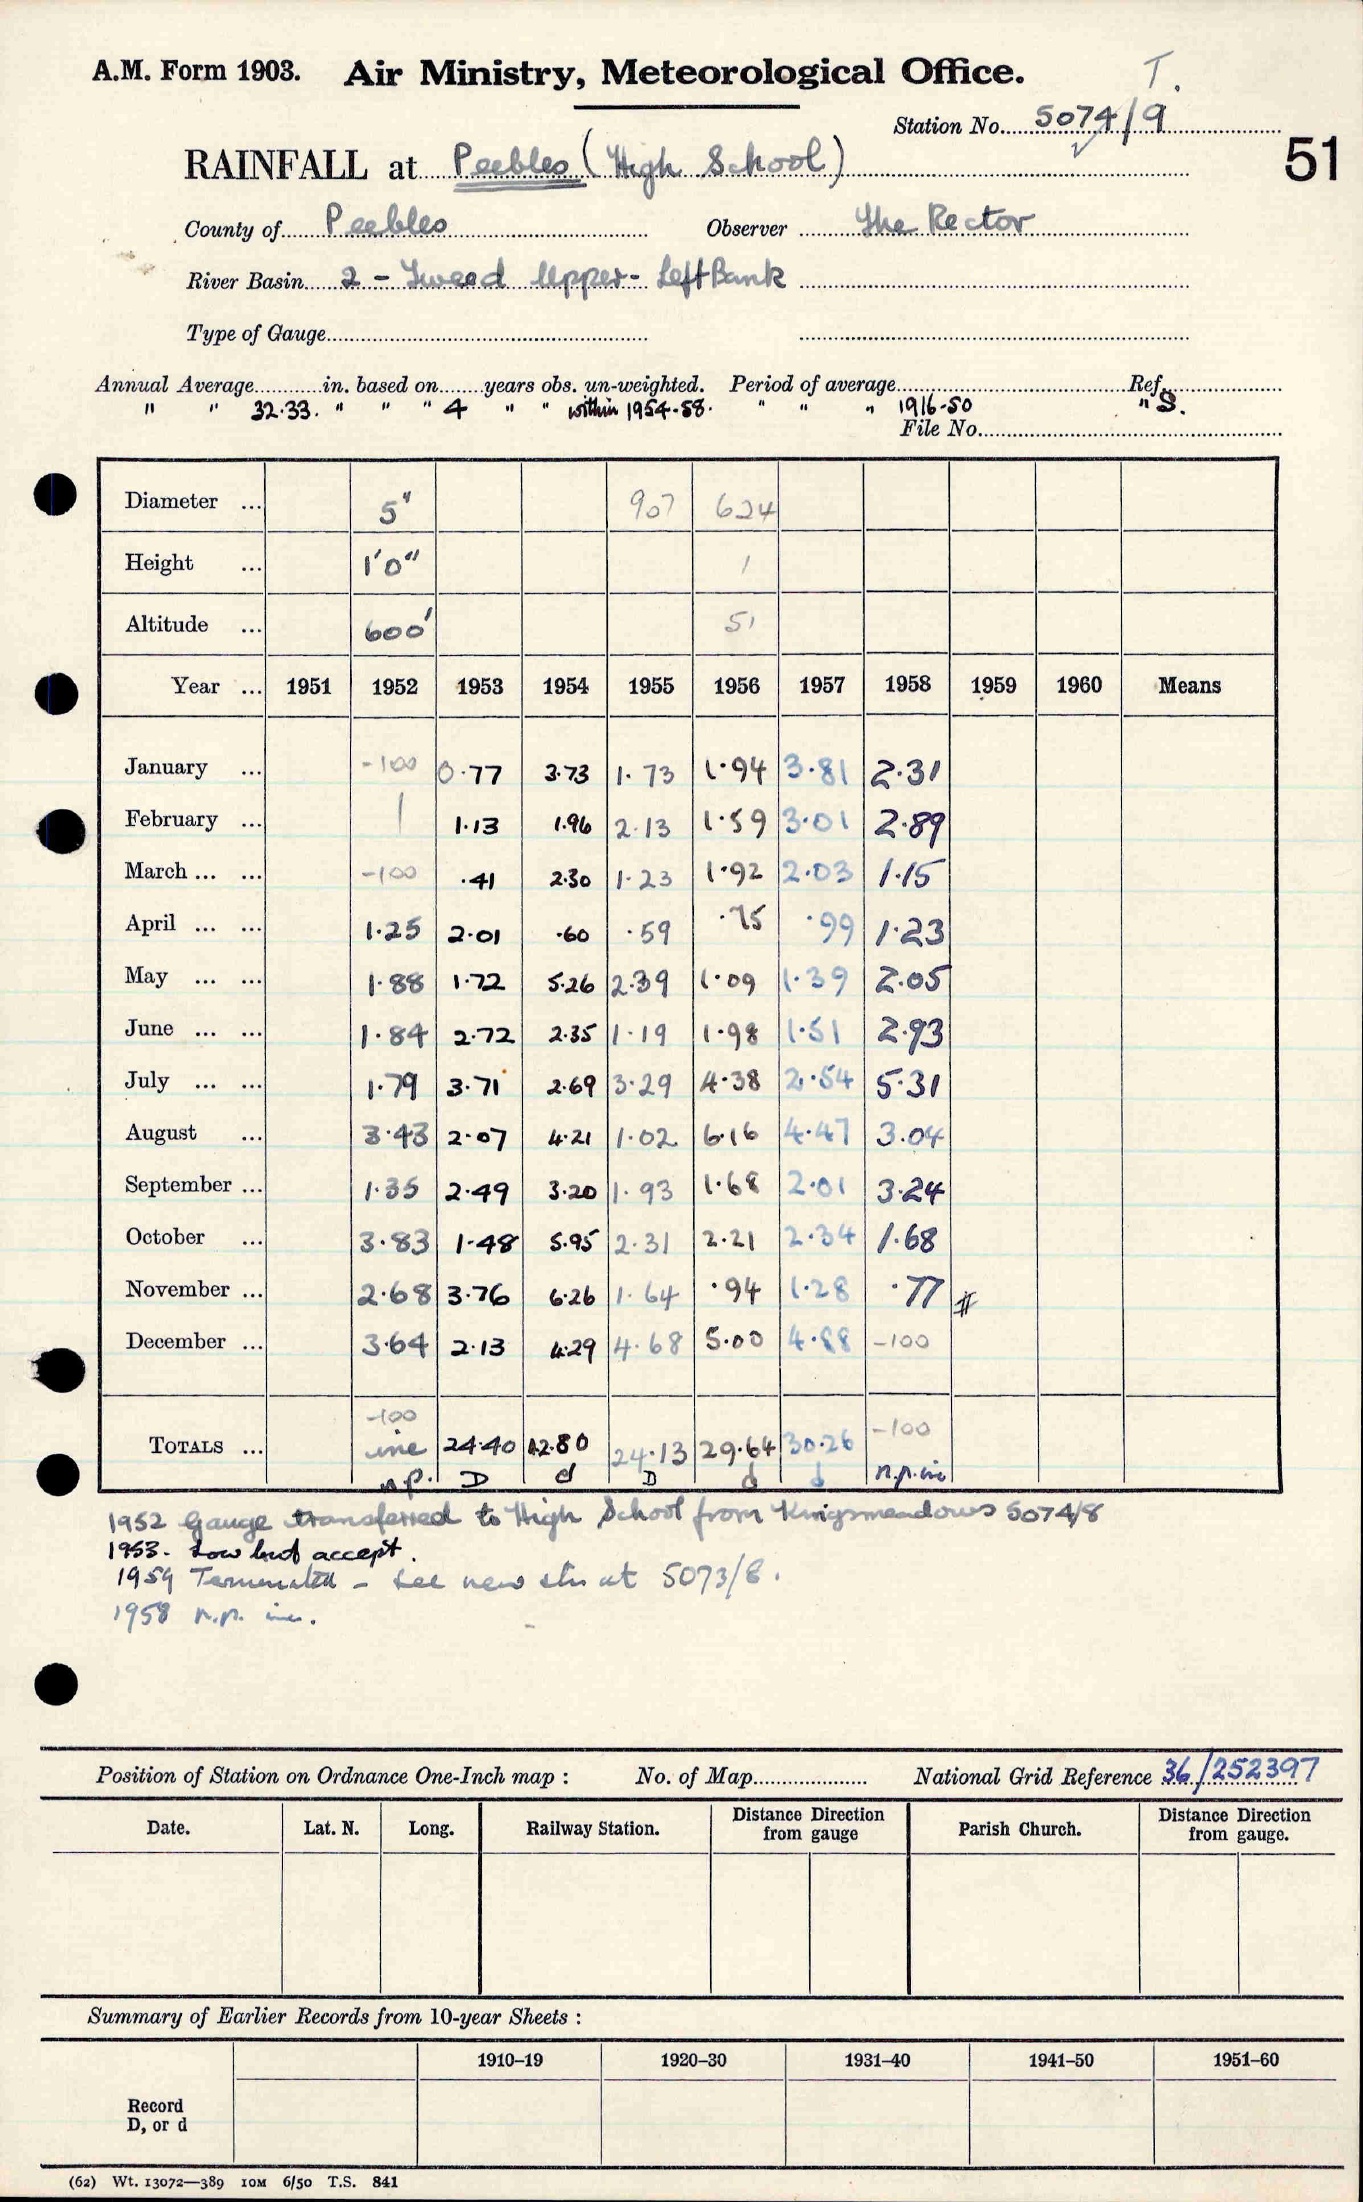 A.M. Form 1903. Air Ministry, Meteorological Office. T.
Station No. 5074/9
51
RAINFALL at Peebles (High School)
County of Peebles Observer The Rector
River Basin 2 - Tweed Upper - Left Bank
Type of Gauge
Annual Average in. based on years obs. un-weighted. Period of average Ref.
" " 32.33. " " " 4 " " within 1954-58. " " " 1916-50 " S.
File No.
Diameter ... 5" 907 624
Height ... 1'0" 1
Altitude ... 600' 51
Year ... 1951 1952 1953 1954 1955 1956 1957 1958 1959 1960 Means
January ... -100 0.77 3.73 1.73 1.94 3.81 2.31
February ... | 1.13 1.96 2.13 1.59 3.01 2.89
March ... ... -100 .41 2.30 1.23 1.92 2.03 1.15
April ... ... 1.25 2.01 .60 .59 .75 .99 1.23
May ... ... 1.88 1.72 5.26 2.39 1.09 1.39 2.05
June ... ... 1.84 2.72 2.35 1.19 1.98 1.51 2.93
July ... ... 1.79 3.71 2.69 3.29 4.38 2.54 5.31
August ... 3.43 2.07 4.21 1.02 6.16 4.47 3.04
September ... 1.35 2.49 3.20 1.93 1.68 2.01 3.24
October ... 3.83 1.48 5.95 2.31 2.21 2.34 1.68
November ... 2.68 3.76 6.26 1.64 .94 1.28 .77 #
December ... 3.64 2.13 4.29 4.68 5.00 4.88 -100
-100 -100
TOTALS ... inc 24.40 42.80 24.13 29.64 30.26
n.p. D d D d d n.p. inc
1952 Gauge transferred to High School from Kingsmeadows 5074/8
1953. Low but accept.
1959 Terminated - See new stn at 5073/8.
1958 n.p. inc.
Position of Station on Ordnance One-Inch map : No. of Map National Grid Reference 36/252397
Date. Lat. N. Long. Railway Station. Distance Direction from gauge Parish Church. Distance Direction from gauge.
Summary of Earlier Records from 10-year Sheets :
1910–19 1920–30 1931–40 1941–50 1951–60
Record
D, or d
(62) Wt. 13072—389 10M 6/50 T.S. 841